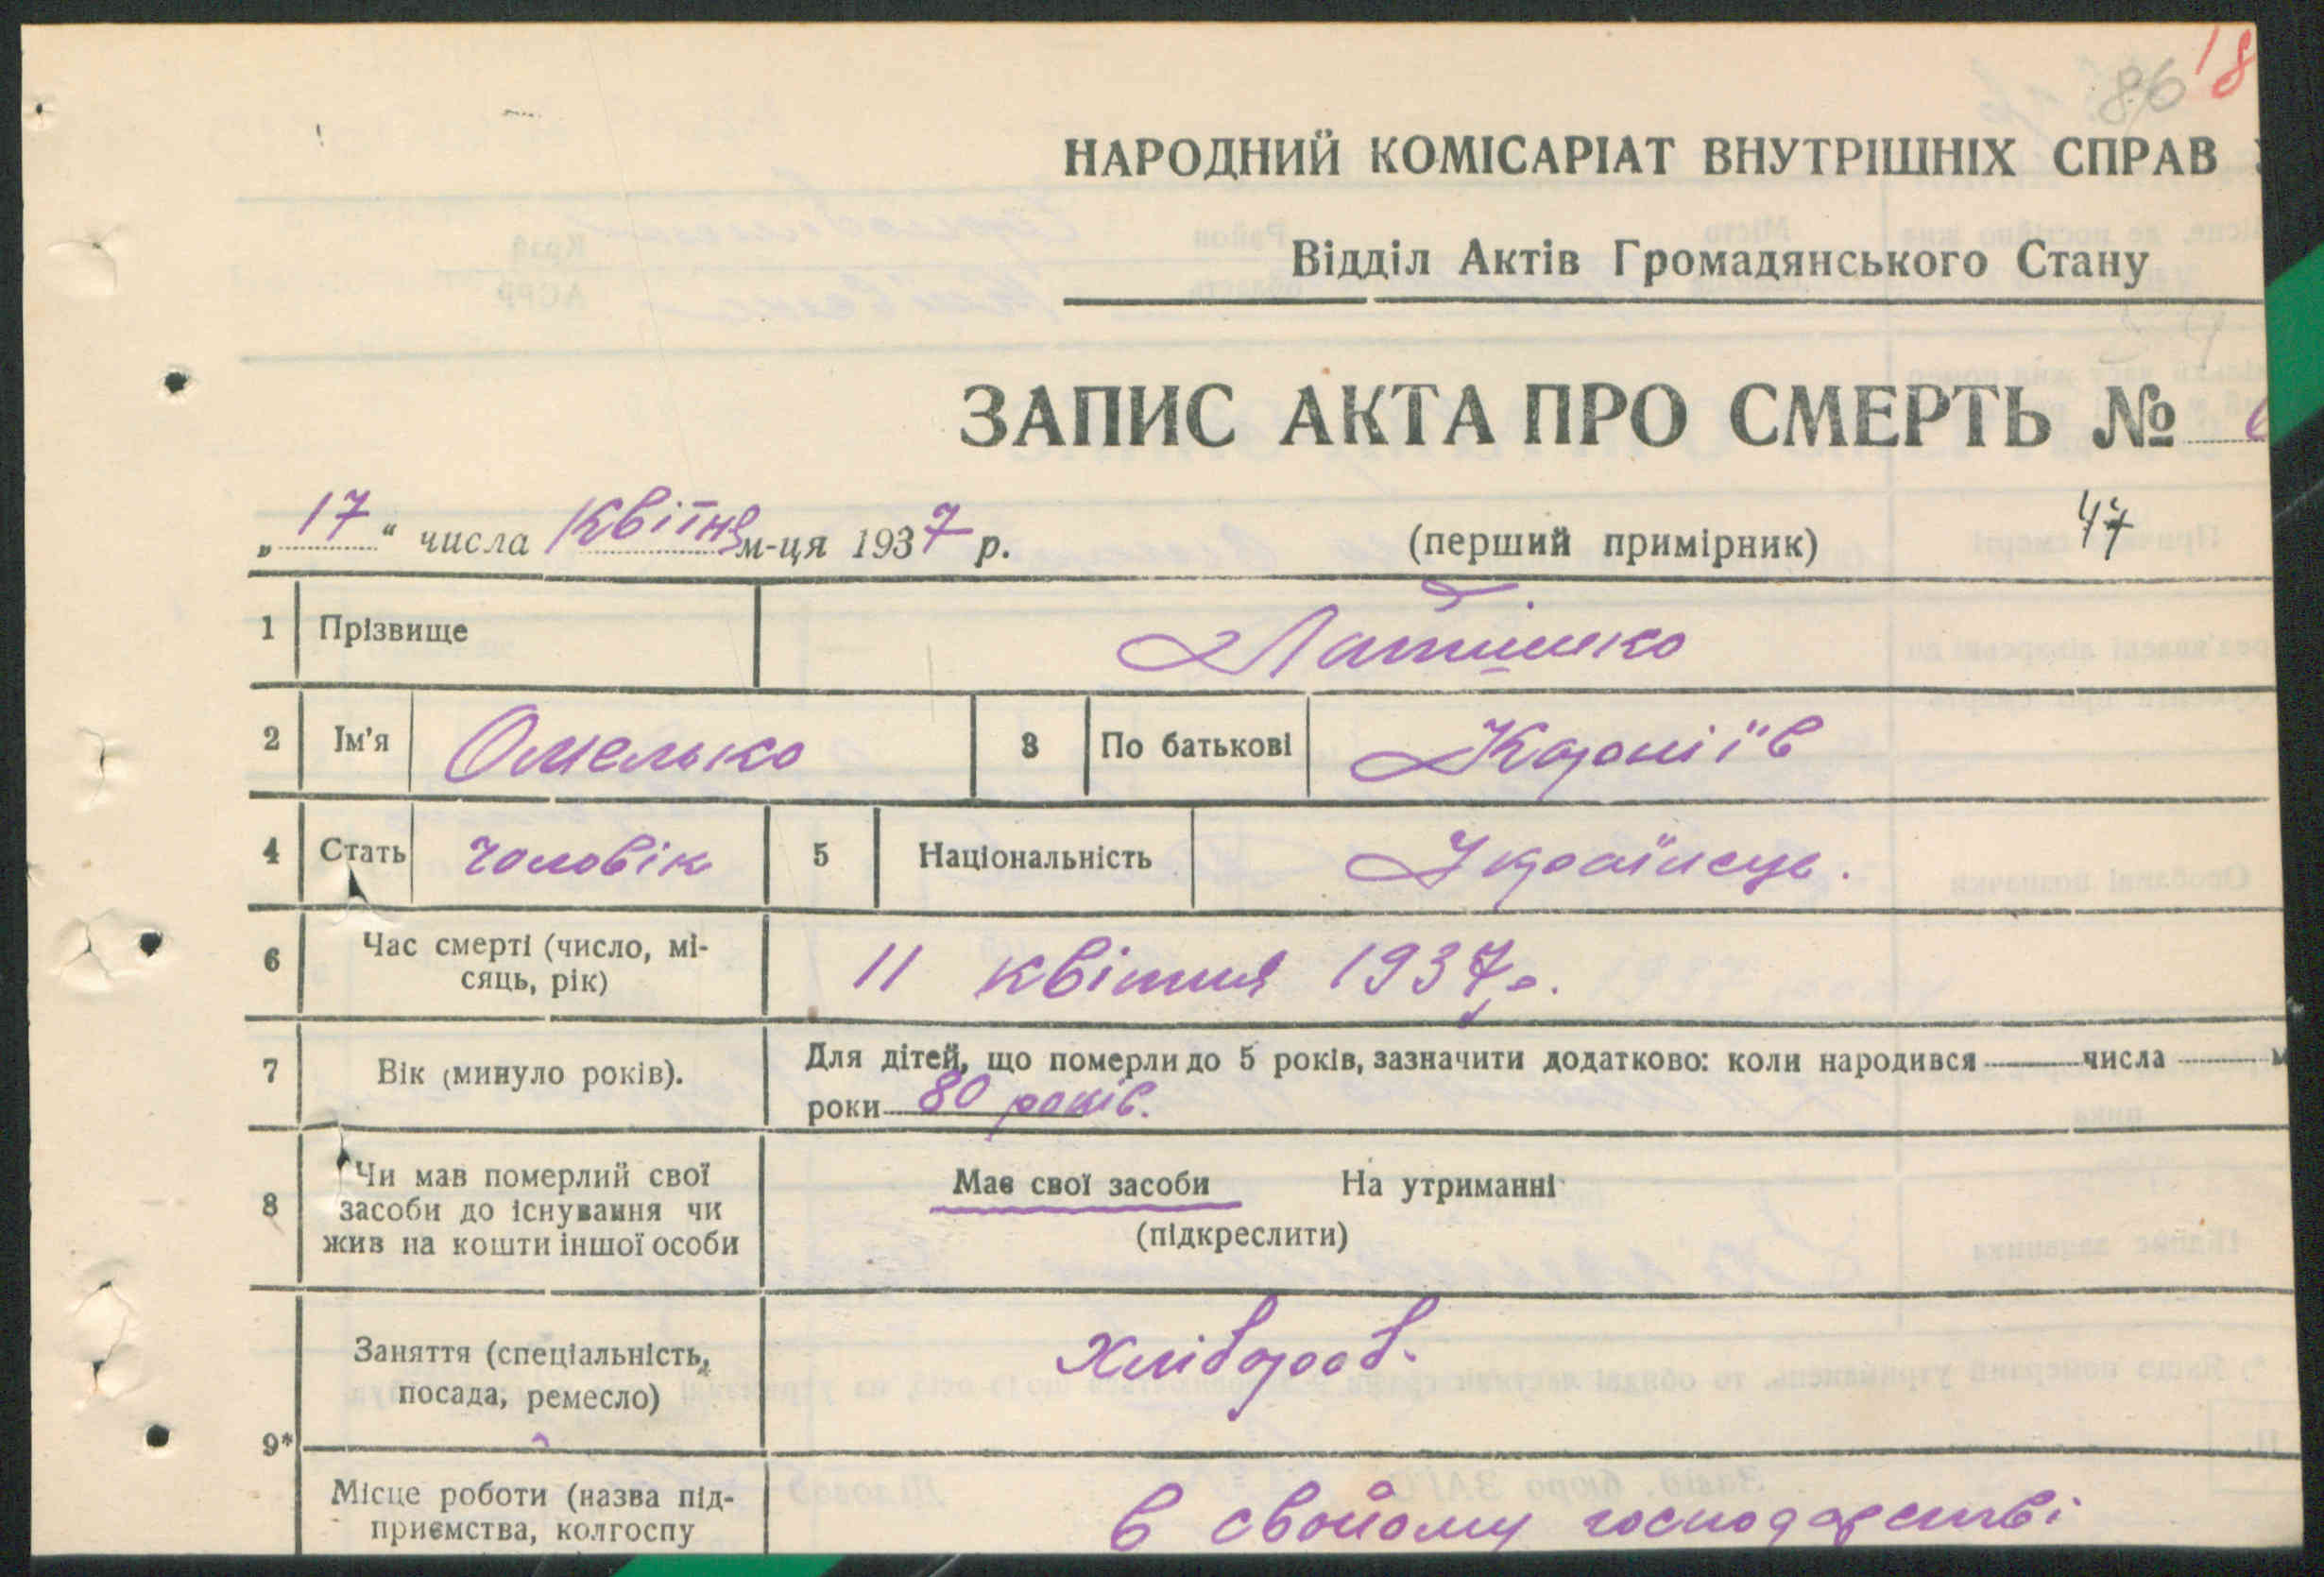 18
86
НАРОДНИЙ КОМІСАРІАТ ВНУТРІШНІХ СПРАВ
Відділ Актів Громадянського Стану
ЗАПИС АКТА ПРО СМЕРТЬ №
„17“ числа Квітня м-ця 1937 р. (перший примірник) 47
1 Прізвище
2 Ім'я Омелько 3 По батькові
4 Стать чоловік 5 Національність Українець.
6 Час смерті (число, мі-
сяць, рік) 11 квітня 1937 р.
7 Вік (минуло років). Для дітей, що померли до 5 років, зазначити додатково: коли народився числа
роки 80 років.
8 Чи мав померлий свої
засоби до існування чи
жив на кошти іншої особи
Має свої засоби На утриманні
(підкреслити)
9* Заняття (спеціальність,
посада, ремесло) Хлібороб.
Місце роботи (назва під-
приємства, колгоспу
в свойому господарстві